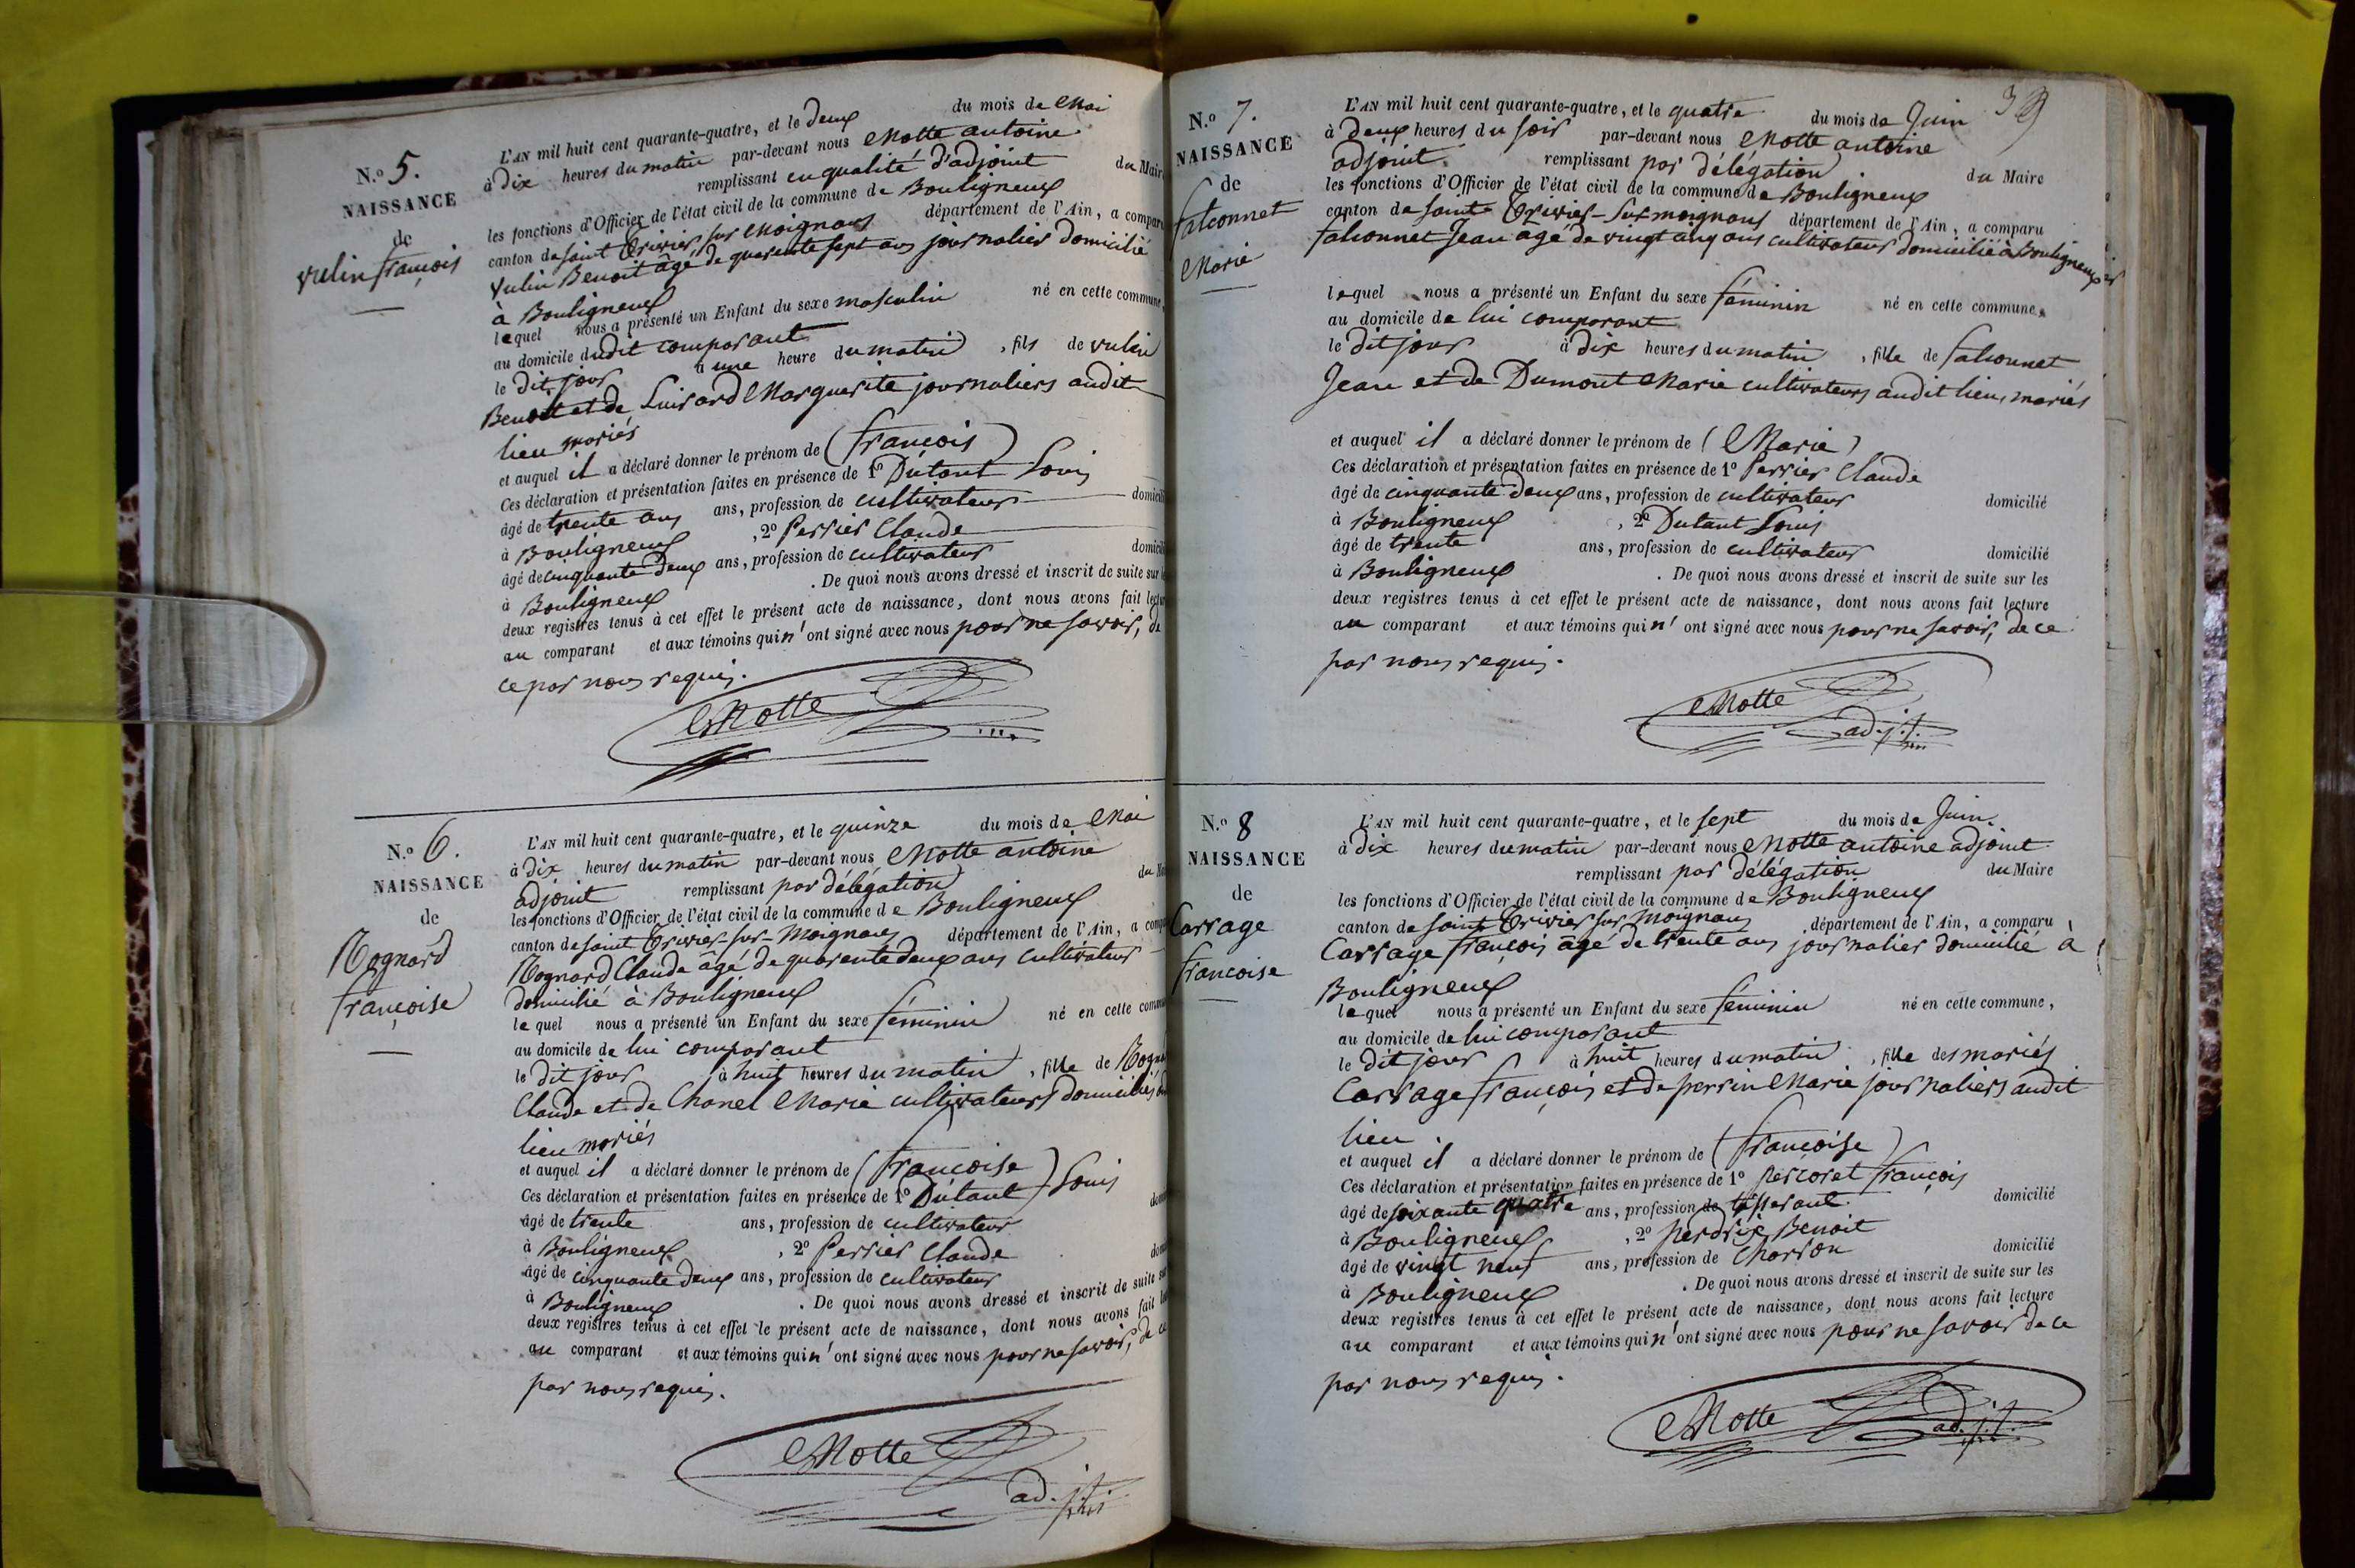 N.º 5.
NAISSANCE
de
vulin françois
L'AN mil huit cent quarante-quatre, et le deux du mois de Mai
à Dix heures du matin par-devant nous Motte antoine
remplissant en qualité d'adjoint du Maire
les fonctions d'Officier de l'état civil de la commune de Bouligneux
canton de saint Trivier sur Moignans département de l'Ain, a comparu
Vulin Benoit âgé de quarente sept ans journalier domicilié
à Bouligneux
lequel nous a présenté un Enfant du sexe masculin né en cette commune,
au domicile dudit comparant
le dit jour à une heure du matin, fils de vulin
Benoit et de Luisard Marguerite journaliers audit
lieu mariés
et auquel il a déclaré donner le prénom de (françois)
Ces déclaration et présentation faites en présence de 1º Dutant Louis
âgé de trente ans ans, profession de cultivateur domicilié
à Bouligneux, 2º Perrier Claude
âgé de cinquante deux ans, profession de cultivateur domicilié
à Bouligneux. De quoi nous avons dressé et inscrit de suite sur les
deux registres tenus à cet effet le présent acte de naissance, dont nous avons fait lecture
au comparant et aux témoins qui n'ont signé avec nous pour ne savoir, de
ce par nous requis.
Motte
N.º 6.
NAISSANCE
de
Rognard
françoise
L'AN mil huit cent quarante-quatre, et le quinze du mois de Mai
à Dix heures du matin par-devant nous Motte antoine
adjoint remplissant par délégation du
les fonctions d'Officier de l'état civil de la commune de Bouligneux
canton de saint Trivier-sur-Moignans département de l'Ain, a comp
Rognard Claude âgé de quarente deux ans cultivateur
domicilié à Bouligneux
lequel nous a présenté un Enfant du sexe féminin né en cette comm
au domicile de lui comparant
le dit jour à huit heures du matin, fille de Rogn
Claude et de Chanel Marie cultivateurs domiciliés
lieu mariés
et auquel il a déclaré donner le prénom de (françoise)
Ces déclaration et présentation faites en présence de 1º Dutant Louis
âgé de trente ans, profession de cultivateur dom
à Bouligneux, 2º Perrier Claude
âgé de cinquante deux ans, profession de cultivateur dom
à Bouligneux. De quoi nous avons dressé et inscrit de suite sur
deux registres tenus à cet effet le présent acte de naissance, dont nous avons fait
au comparant et aux témoins qui n'ont signé avec nous pour ne savoir, de ce
par nous requis.
Motte
ad.j.t.
39
N.º 7.
NAISSANCE
de
falconnet
Marie
L'AN mil huit cent quarante-quatre, et le quatre du mois de Juin
à deux heures du soir par-devant nous Motte antoine
adjoint. remplissant par délégation du Maire
les fonctions d'Officier de l'état civil de la commune de Bouligneux
canton de saint Trivier-sur moignans département de l'Ain, a comparu
falconnet Jean agé de vingt cinq ans cultivateur domicilié à Bouligneux
lequel nous a présenté un Enfant du sexe féminin né en cette commune,
au domicile de lui comparant
le dit jour à dix heures du matin, fille de falconnet
Jean et de Dumont Marie cultivateurs audit lieu, mariés
et auquel il a déclaré donner le prénom de (Marie)
Ces déclaration et présentation faites en présence de 1º Perrier Claude
âgé de cinquante deux ans, profession de cultivateur domicilié
à Bouligneux, 2º Dutant Louis
âgé de trente ans, profession de cultivateur domicilié
à Bouligneux. De quoi nous avons dressé et inscrit de suite sur les
deux registres tenus à cet effet le présent acte de naissance, dont nous avons fait lecture
au comparant et aux témoins qui n'ont signé avec nous pour ne savoir, de ce
par nous requis.
Motte
ad.j.t.
N.º 8
NAISSANCE
de
Carrage
francoise
L'AN mil huit cent quarante-quatre, et le sept du mois de Juin.
à dix heures du matin par-devant nous Motte antoine adjoint
remplissant par délégation du Maire
les fonctions d'Officier de l'état civil de la commune de Bouligneux
canton de saint Trivier sur moignans département de l'Ain, a comparu
Carrage françois âgé de trente ans journalier domicilié à
Bouligneux
lequel nous a présenté un Enfant du sexe féminin né en cette commune,
au domicile de lui comparant
le dit jour à huit heures du matin, fille des mariés
Carrage françois et de perrin Marie journaliers audit
lieu.
et auquel il a déclaré donner le prénom de (françoise)
Ces déclaration et présentation faites en présence de 1º percoret françois
âgé de soixante quatre ans, profession de tisserant domicilié
à Bouligneux, 2º perdrix Benoit
âgé de vingt neuf ans, profession de Charron domicilié
à Bouligneux. De quoi nous avons dressé et inscrit de suite sur les
deux registres tenus à cet effet le présent acte de naissance, dont nous avons fait lecture
au comparant et aux témoins qui n'ont signé avec nous pour ne savoir de ce
par nous requis.
Motte
ad.j.t.